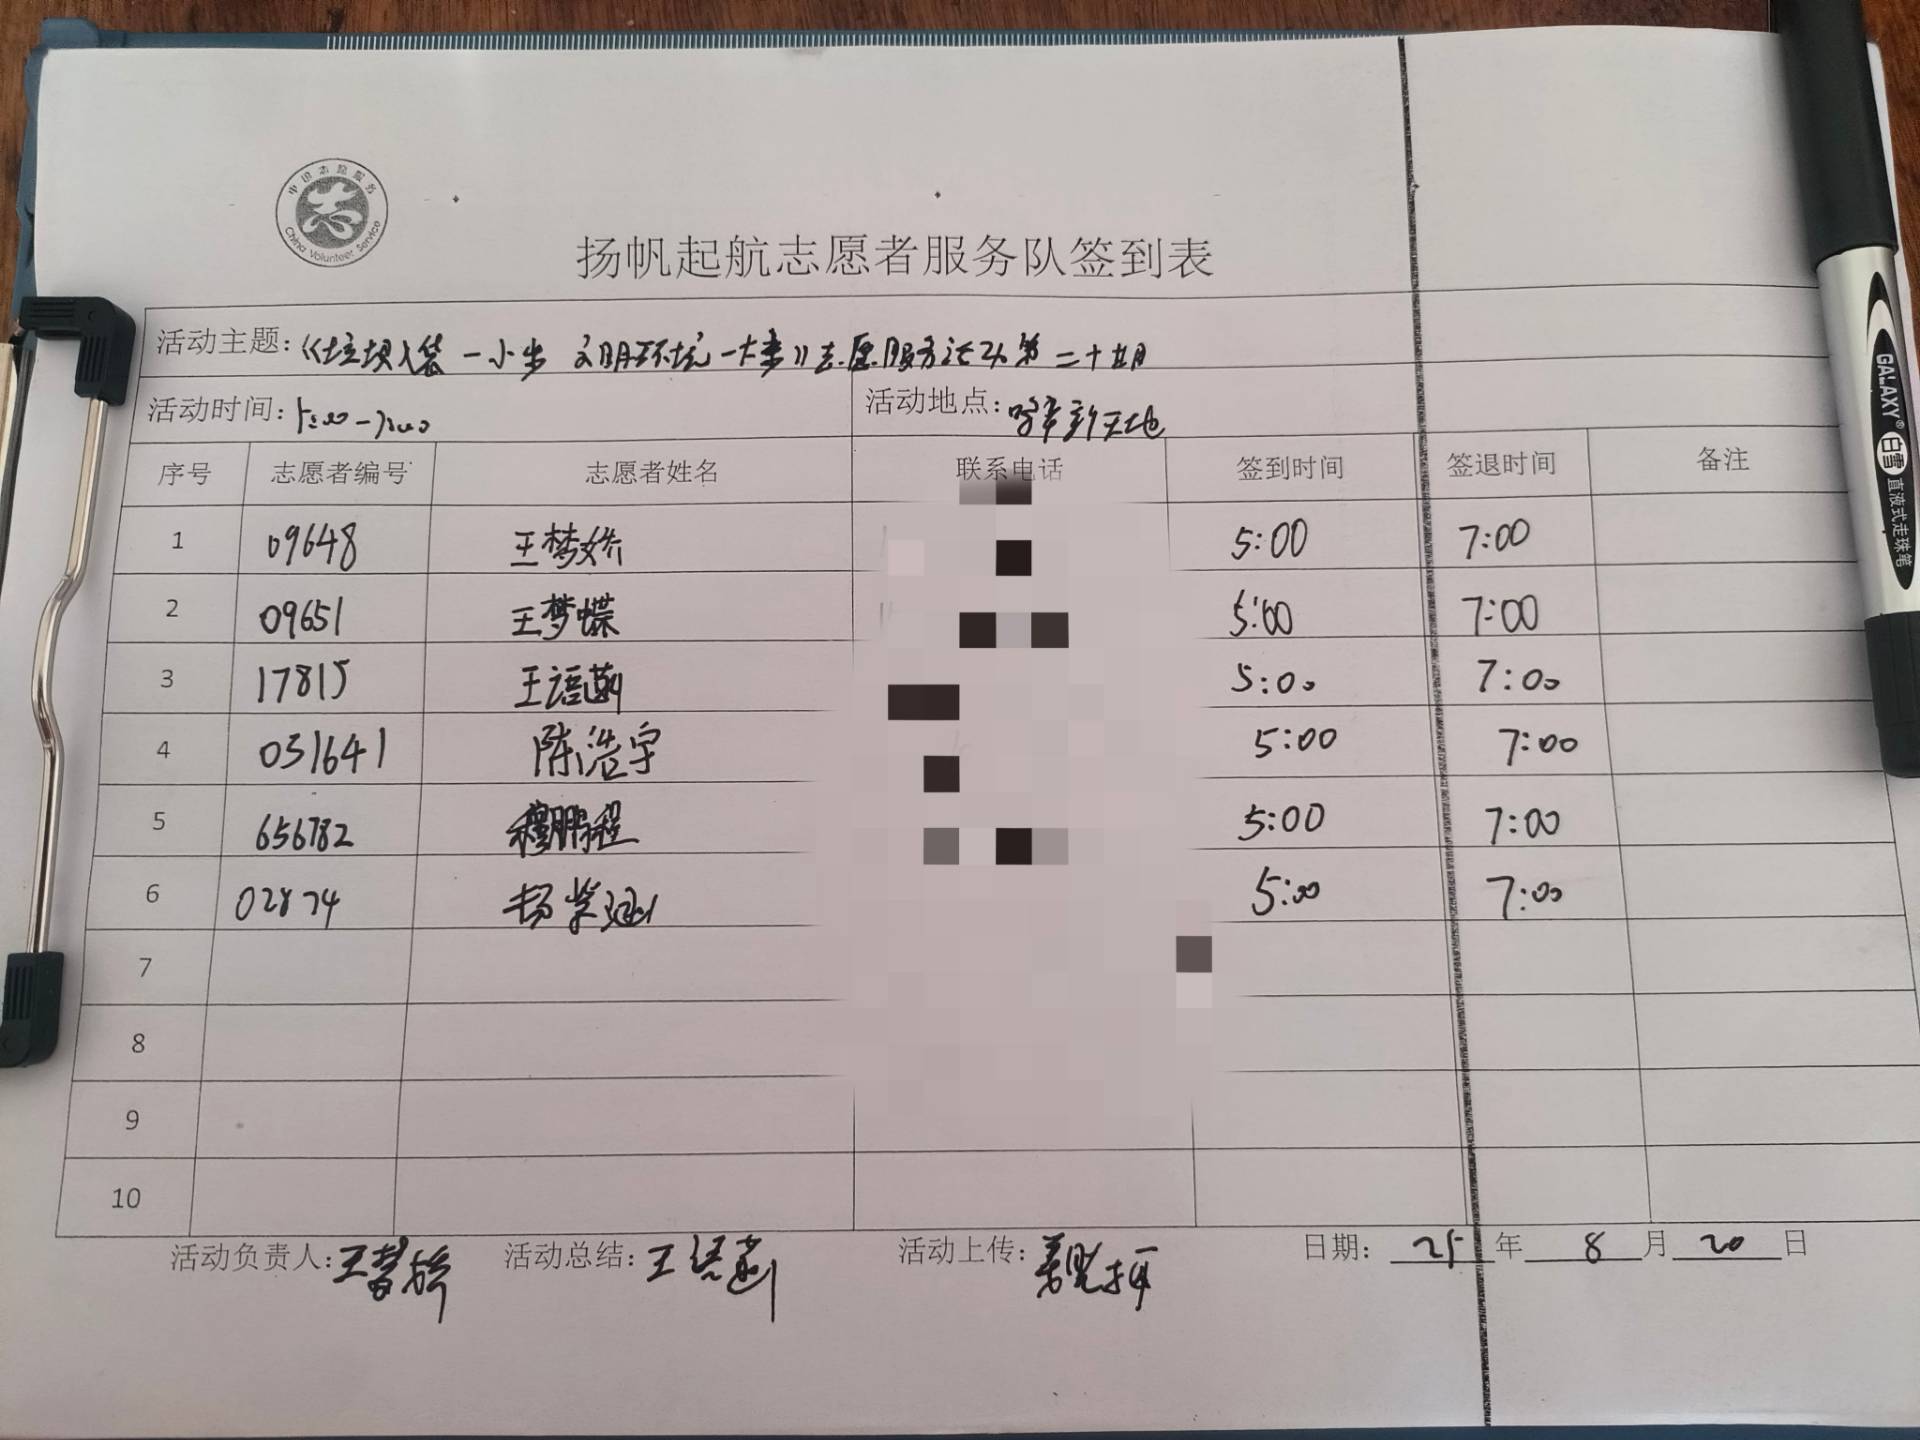 中国志愿服务
China Volunteer Service
扬帆起航志愿者服务队签到表
活动主题:《垃圾入袋一小步 文明环境一大步》志愿服务活动第二十五期
活动时间:5:00-7:00 活动地点: 新天地
序号 志愿者编号 志愿者姓名 联系电话 签到时间 签退时间 备注
1 09648 王梦娇 5:00 7:00
2 09651 王梦蝶 5:00 7:00
3 17815 王语 5:00 7:00
4 031641 陈浩宇 5:00 7:00
5 656782 穆鹏程 5:00 7:00
6 02874 杨紫涵 5:00 7:00
7
8
9
10
活动负责人:王梦娇 活动总结:王语 活动上传: 日期: 25 年 8 月 20 日
GALAXY®
白雪
直液式走珠笔